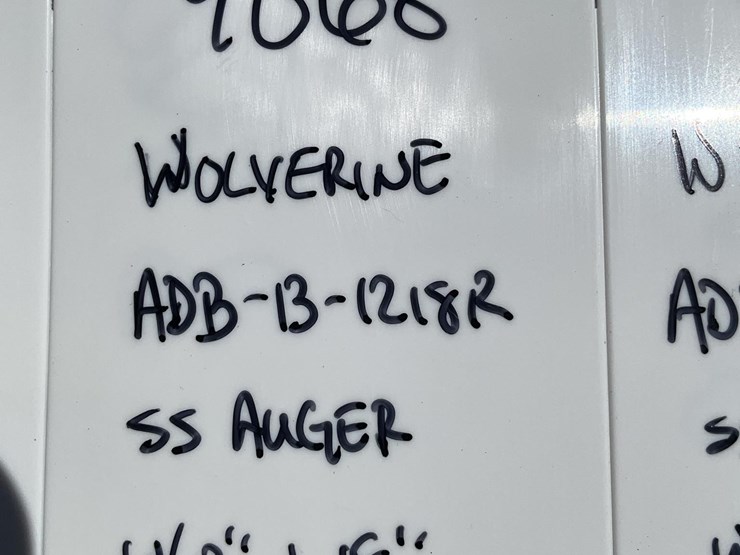 WOLVERINE
W
ADB-13-1218R
AD
SS AUGER
S